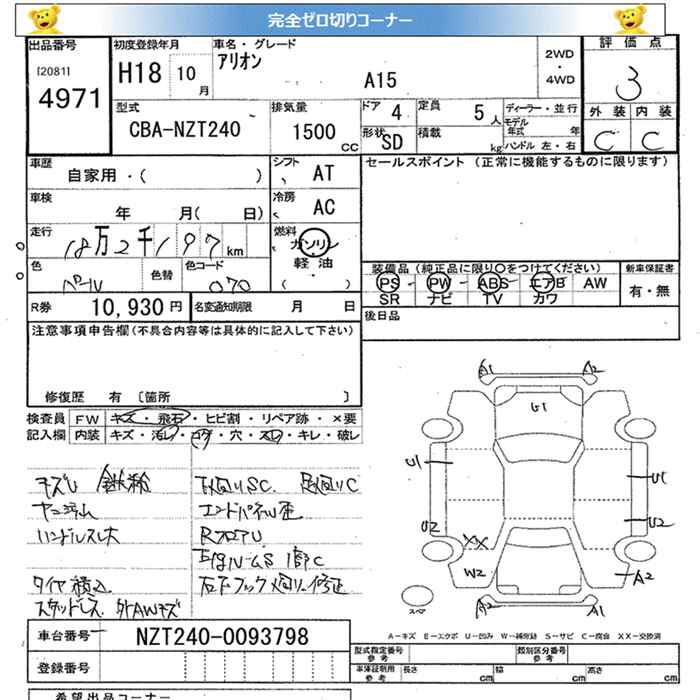 完全ゼロ切りコーナー
出品番号 初度登録年月 車名・グレード 2WD・4WD 評価点
[2081] H18 10月 アリオン
4971 A15 3
型式 排気量 ドア 4 定員 5人 ディーラー・並行 外装 内装
CBA-NZT240 1500 CC 形状 SD 積載 kg モデル年式 年 C C
ハンドル 左・右
車歴 シフト セールスポイント (正常に機能するものに限ります)
自家用・( ) AT
車検 冷房
年 月( 日) AC
走行 燃料
18万2千197km ガソリン
軽油
色 色替 色コード 装備品 (純正品に限り○をつけてください) 新車保証書
パール 070 PS PW ABS エアB AW 有・無
SR ナビ TV カワ
R券 10,930円 名変通知期限 月 日 後日品
注意事項申告欄(不具合内容等は具体的に記入して下さい)
修復歴 有 〔箇所 〕
検査員 FW キズ・飛石・ヒビ割・リペア跡・×要
記入欄 内装 キズ・汚レ・コゲ・穴・スレ・キレ・破レ
A1 A2
G1
U1 U1
U2 U2
XX
W2 A2
スペア A2 A1
キズU 下廻りSC. 足廻りC
ハンドルスレ大 RフロアU
タイヤ積込
スタッドレス 外AWキズ
A-キズ E-エクボ U-凹み W-補修跡 S-サビ C-腐食 XX-交換済
車台番号 NZT240-0093798
登録番号
型式指定番号 参考 類別区分番号 参考
車庫証明用 参考 長さ cm 幅 cm 高さ cm
希望出品コーナー